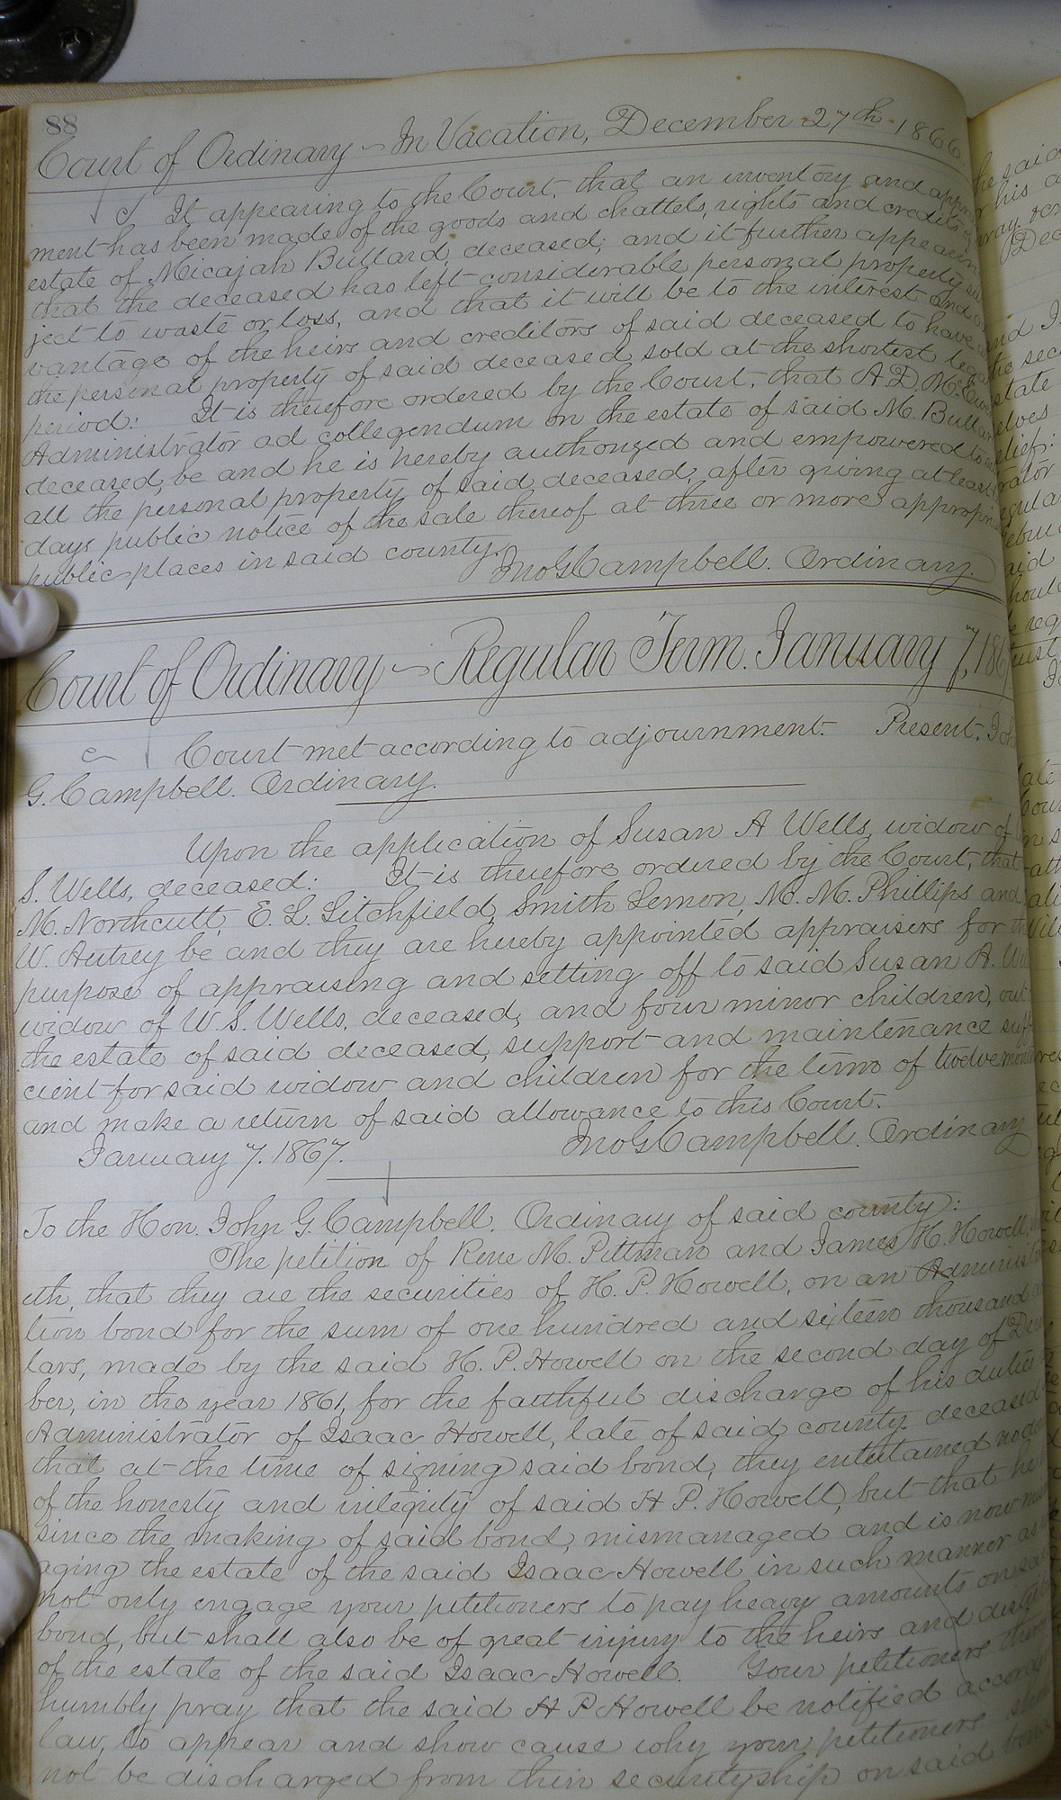 88
Court of Ordinary - In Vacation, December 27th 1866.
It appearing to the Court, that an inventory and appra
ment has been made of the goods and chattels, rights and credits of
estate of Micajah Bullard, deceased; and it further appearing
that the deceased has left considerable personal property su
ject to waste or loss, and that it will be to the interest and
vantage of the heirs and creditors of said deceased to have
the personal property of said deceased sold at the shortest legal
period: It is therefore ordered by the Court, that A. D. McEw
Administrator ad collegendum on the estate of said M. Bullard
deceased, be and he is hereby authorized and empowered to
all the personal property of said deceased, after giving at least
days public notice of the sale thereof at three or more appropri
public places in said county.
Jno G Campbell. Ordinary.
Court of Ordinary - Regular Term. January 7, 186
Court met according to adjournment. Present, Joh
G. Campbell. Ordinary.
Upon the application of Susan A Wells, widow of
S. Wells, deceased: It is therefore ordered by the Court, that
M. Northcutt, E. L. Litchfield, Smith Lemon, M. M. Phillips and
W. Autrey be and they are hereby appointed appraisers for the
purpose of appraising and setting off to said Susan A. We
widow of W. S. Wells, deceased, and four minor children, out
the estate of said deceased, support and maintenance suffi
cient for said widow and children for the time of twelve months
and make a return of said allowance to this Court.
January 7. 1867. Jno G Campbell. Ordinary
To the Hon. John G. Campbell. Ordinary of said county:
The petition of Rene M. Pittman and James H. Howell,
eth, that they are the securities of H. P. Howell, on an Administra
tion bond for the sum of one hundred and sixteen thousand
lars, made by the said H. P. Howell on the second day of Decem
ber, in the year 1861, for the faithful discharge of his duties
Administrator of Isaac Howell, late of said county deceased
that at the time of signing said bond, they entertained no
of the honesty and integrity of said H P. Howell, but that he
since the making of said bond, mismanaged and is now
aging the estate of the said Isaac Howell in such manner as
not only engage your petitioners to pay heavy amounts on said
bond, but shall also be of great injury to the heirs and
of the estate of the said Isaac Howell. Your petitioners
humbly pray that the said H P Howell be notified
law, to appear and show cause why your petitioners
not be discharged from their securityship on said